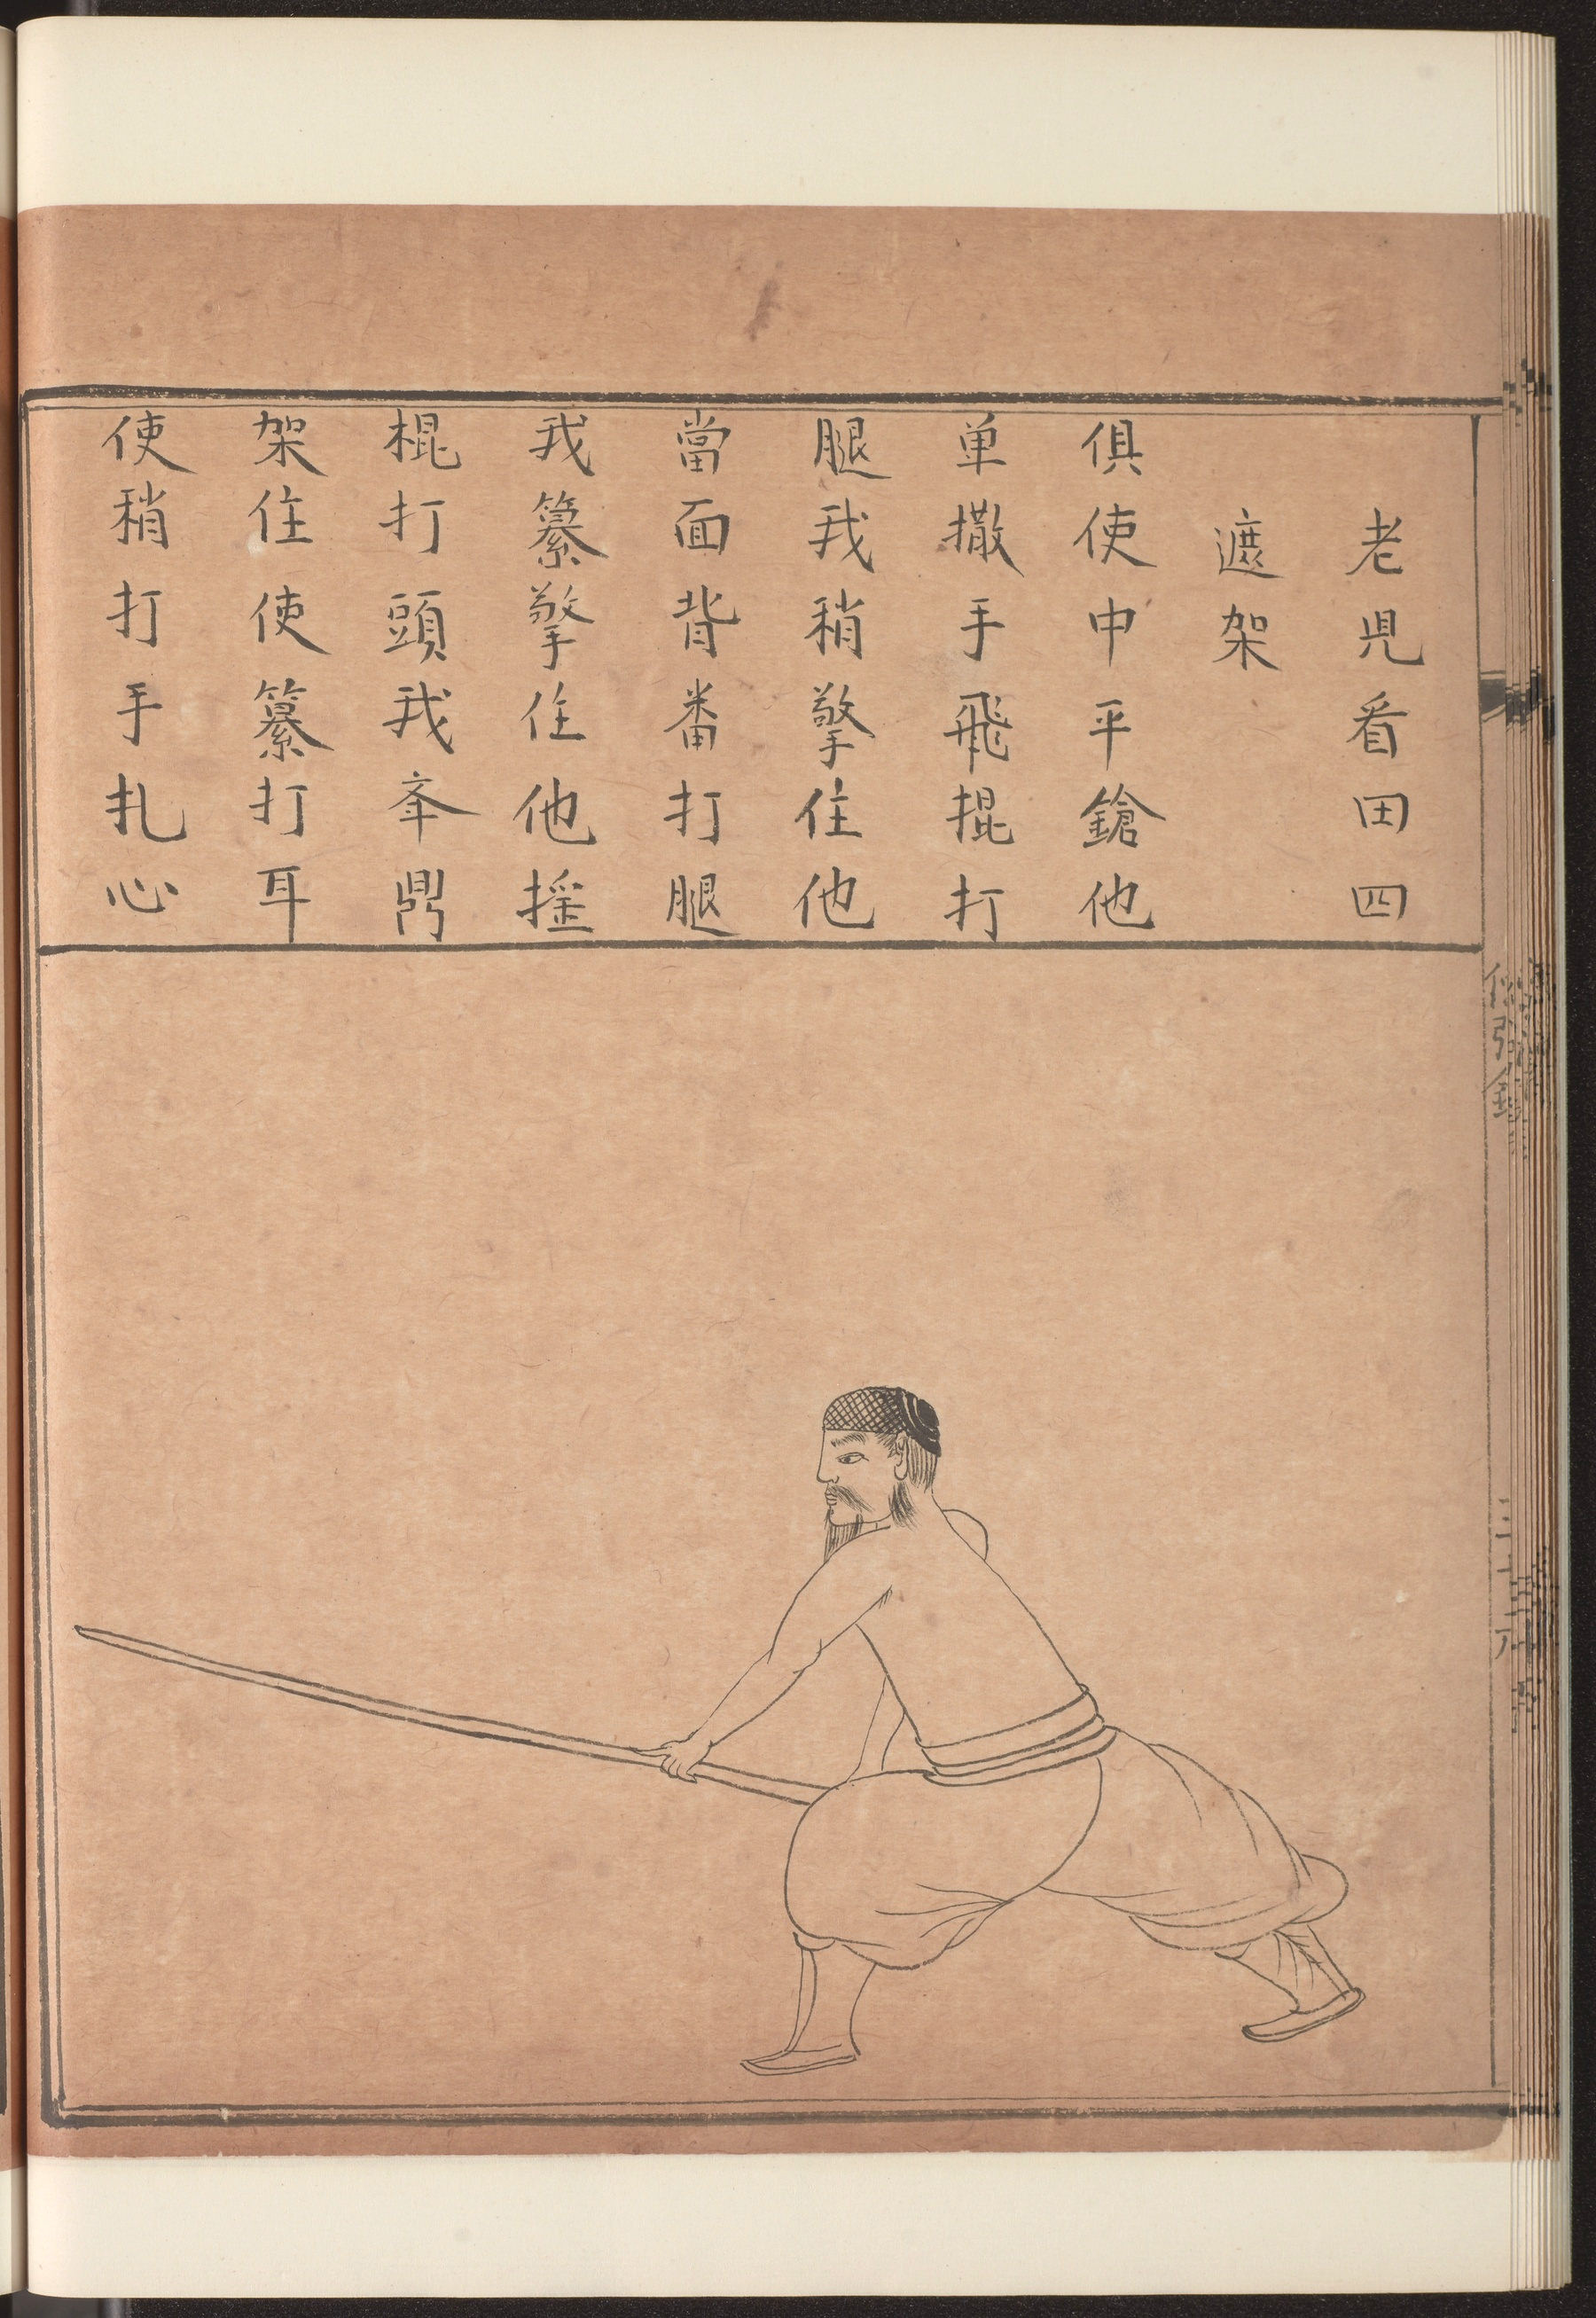 老児看田四
遮架
俱使中平鎗他
单撒手飛掍打
腿我稍擎住他
當面背番打腿
我纂擎住他摇
棍打頭我
架住使纂打耳
使稍打手扎心